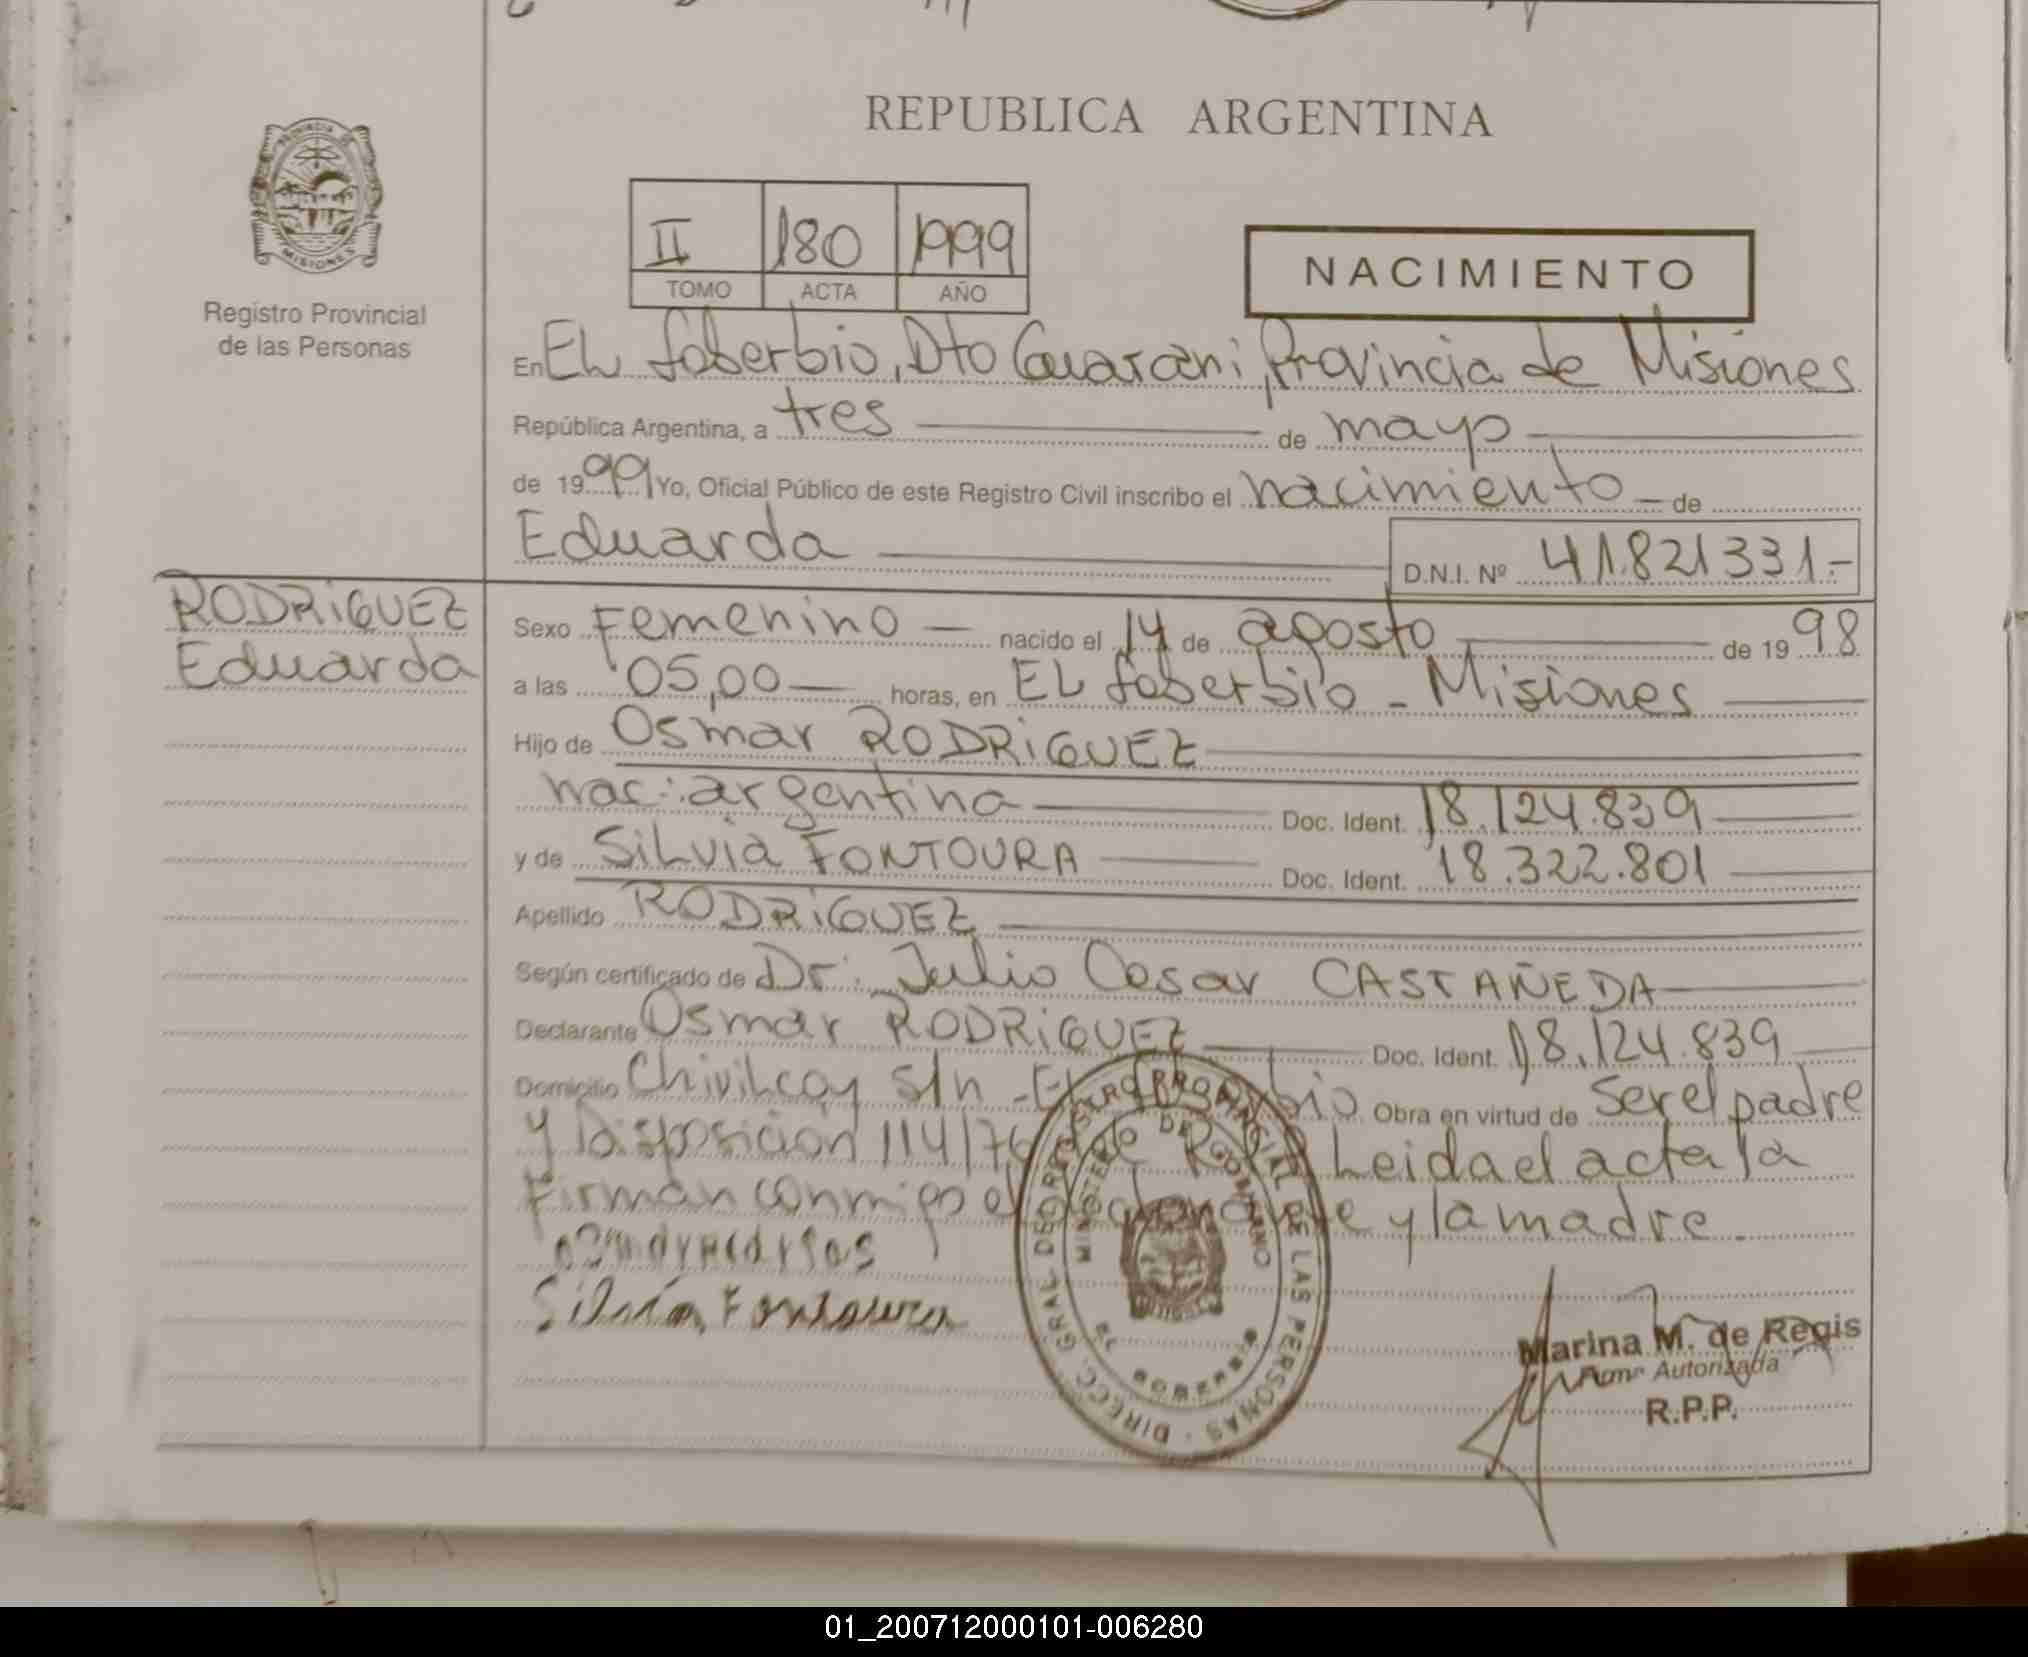 REPUBLICA ARGENTINA
PROVINCIA DE
MISIONES
Registro Provincial
de las Personas
II 180 1999
TOMO ACTA AÑO
NACIMIENTO
En EL Soberbio, Dto Guarani, Provincia de Misiones
República Argentina, a tres de mayo
de 1999 Yo, Oficial Público de este Registro Civil inscribo el nacimiento de
Eduarda
D.N.I. Nº 41.821331.-
RODRiGUEZ
Eduarda
Sexo Femenino nacido el 14 de agosto de 1998
a las 05,00 horas, en EL Soberbio - Misiones
Hijo de Osmar RODRiGUEZ
nac: argentina Doc. Ident. 18.124.839
y de SiLvia FONTOURA Doc. Ident. 18.322.801
Apellido RODRiGUEZ
Según certificado de Dr. Julio Cesar CASTAÑEDA
Declarante Osmar RODRiGUEZ Doc. Ident. 18.124.839
Domicilio Chivilcoy S/n - EL Soberbio Obra en virtud de ser el padre
y Disposición 114/76 Leida el acta la
Firman conmigo el declarante y la madre.
Silvia Fontoura
DIRECC. GRAL. DE REGISTRO PROVINCIAL DE LAS PERSONAS
MINISTERIO DE GOBIERNO
Marina M. de Regis
Firma Autorizada
R.P.P.
01_200712000101-006280